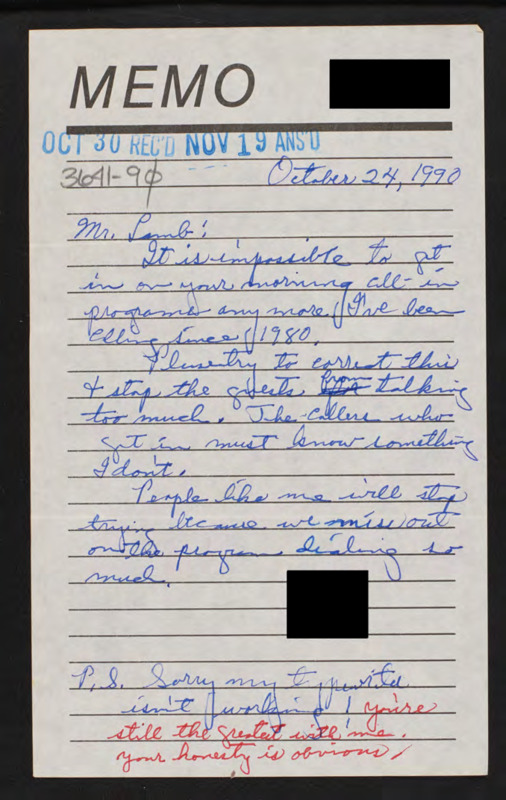 MEMO
OCT 30 REC'D NOV 19 ANS'D
3641-90
October 24, 1990
Mr. Lamb:
It is impossible to get
in on your morning call-in
programs any more. I've been
calling since 1980.
Please try to correct this
& stop the guests talking
too much. The callers who
get in must know something
I don't.
People like me will stop
trying because we miss out
on the program dialing so
much.
P.S. Sorry my typewriter
isn't working! You're
still the greatest with me.
Your honesty is obvious!